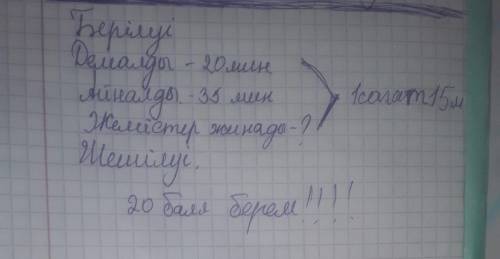 Берілуі
Демалды - 20 мин
Айналды - 35 мин
Жемістер жинады - ? 1сағат 15м
Шешілуі.
20 балл берем!!!!